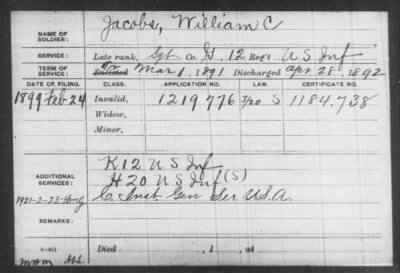 NAME OF SOLDIER: Jacobs, William C
SERVICE: Late rank, Sgt Co. G, 12 Reg't U S Inf
TERM OF SERVICE: Enlisted To Mar 1, 1891 Discharged Apr 28, 1892
DATE OF FILING. CLASS. APPLICATION NO. LAW. CERTIFICATE NO.
1899 Feb 24 Invalid, 1219776 S 1184.738
Widow,
Minor,
K 12 U S Inf
ADDITIONAL SERVICES: H 20 U S Inf (S)
1921-2-23 C. Inst. Gen Ser U.S.A.
REMARKS:
Died , 1 , at